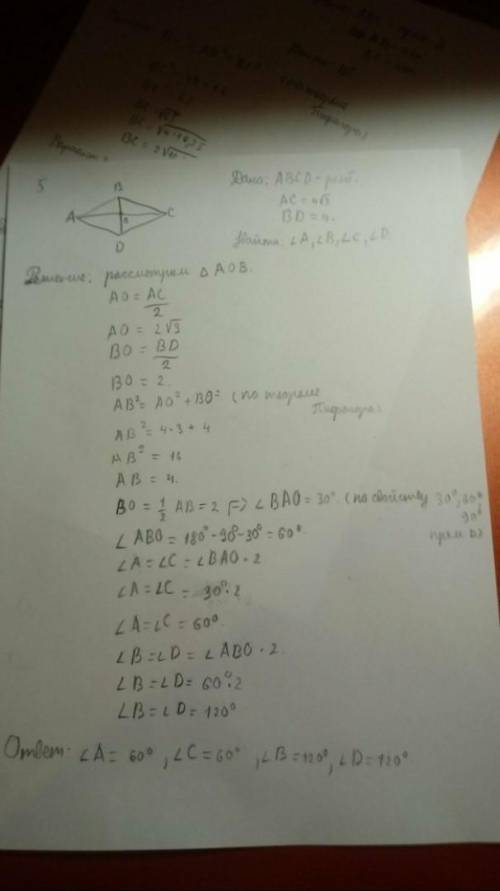 BC = 2√
5
B
A
C
D
Дано: ABCD - ромб.
AC = 4√3
BD = 4.
Найти: ∠A, ∠B, ∠C, ∠D.
Решение: рассмотрим △AOB.
AO = AC/2
AO = 2√3
BO = BD/2
BO = 2.
AB² = AO² + BO² (по теореме
Пифагора)
AB² = 4·3 + 4
AB² = 16
AB = 4.
BO = 1/2 AB = 2 => ∠BAO = 30°. (по свойству 30°, 60°
90°
∠ABO = 180° - 90° - 30° = 60°.
∠A = ∠C = ∠BAO · 2
∠A = ∠C = 30° · 2
∠A = ∠C = 60°.
∠B = ∠D = ∠ABO · 2.
∠B = ∠D = 60° · 2
∠B = ∠D = 120°
Ответ: ∠A = 60°, ∠C = 60°, ∠B = 120°, ∠D = 120°